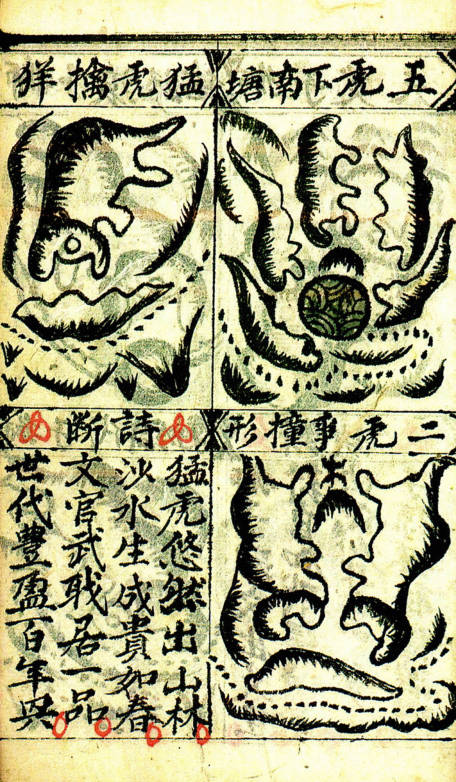 五虎下南塘
猛虎擒徉
二虎爭撞形
詩断
猛虎悠然出山林
沙水生成貴如春
文官武職居一品
世代豐盈百年